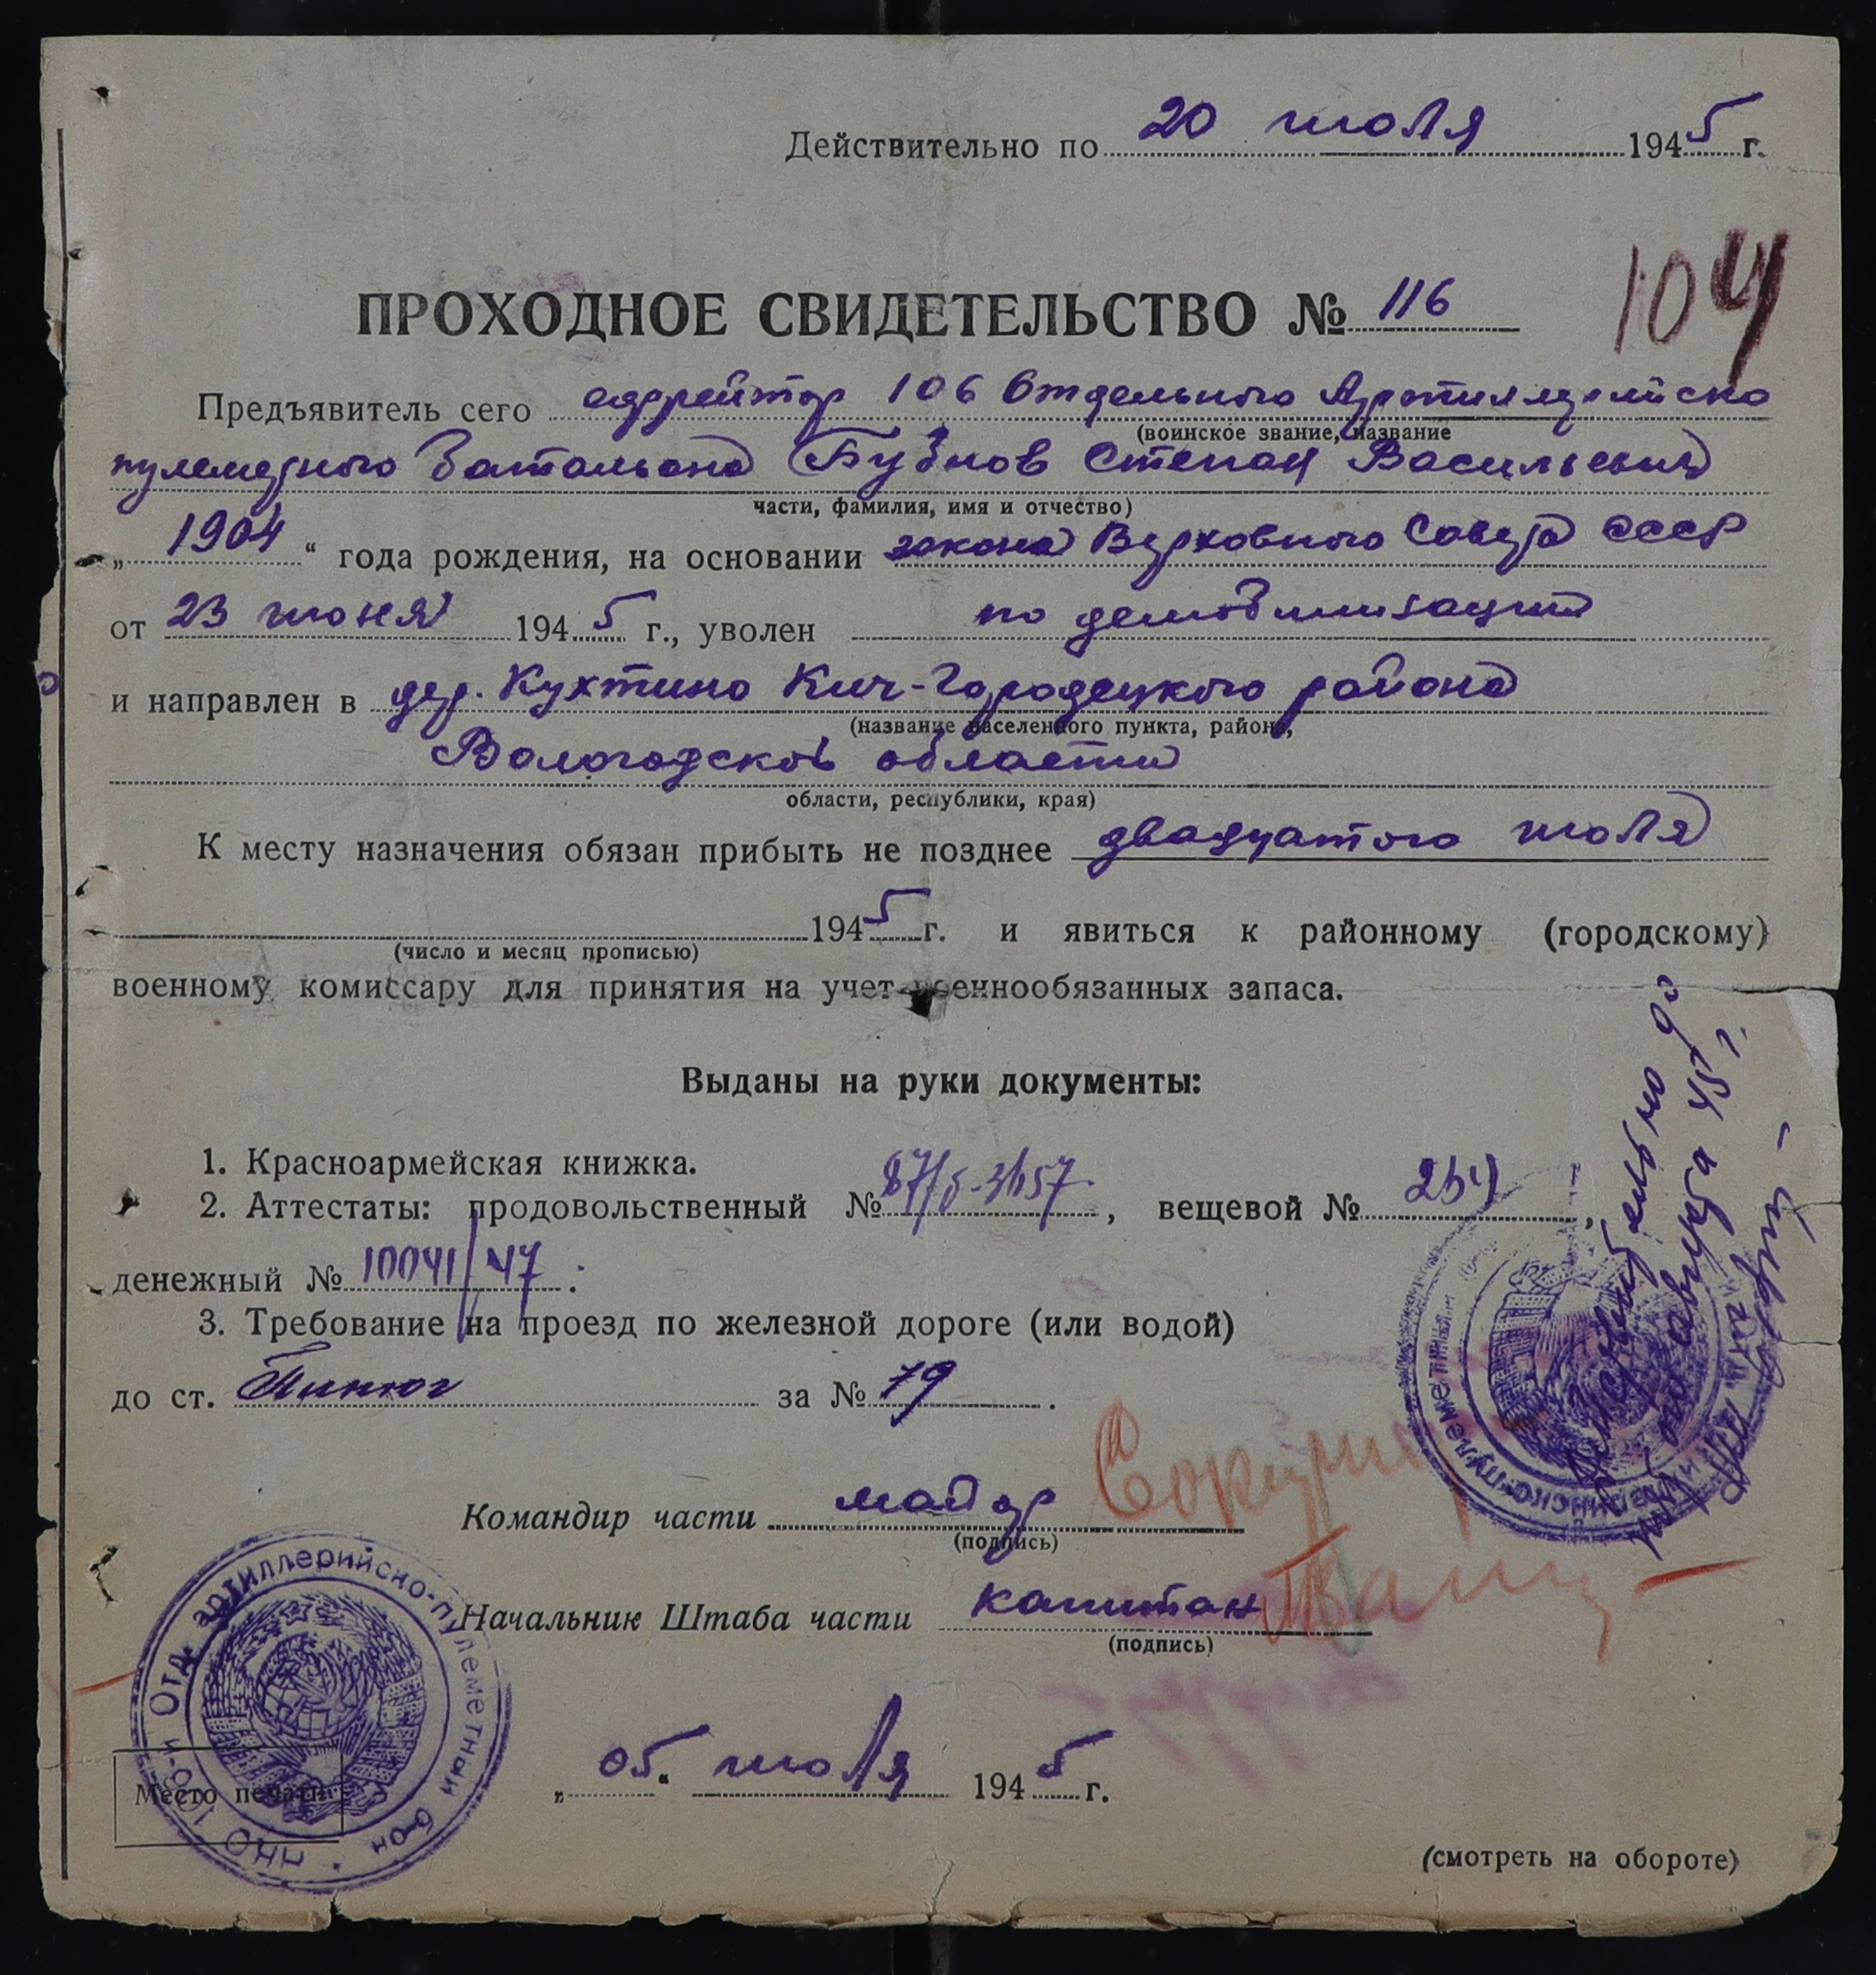 Действительно по 20 июля 1945 г.
ПРОХОДНОЕ СВИДЕТЕЛЬСТВО № 116
104
Предъявитель сего ефрейтор 106 Отдельного Артиллерийско
(воинское звание, название
пулеметного батальона Бубнов Степан Васильевич
части, фамилия, имя и отчество)
„ 1904 “ года рождения, на основании закона Верховного Совета СССР
от 23 июня 1945 г., уволен по демобилизации
и направлен в дер. Кухтино Кич-Городецкого района
(название населенного пункта, района,
Вологодской области
области, республики, края)
К месту назначения обязан прибыть не позднее двадцатого июля
1945 г. и явиться к районному (городскому)
(число и месяц прописью)
военному комиссару для принятия на учет военнообязанных запаса.
Выданы на руки документы:
1. Красноармейская книжка.
2. Аттестаты: продовольственный №, вещевой №,
денежный № 10041/47.
3. Требование на проезд по железной дороге (или водой)
до ст. Пинюг за № 79.
Командир части майор
(подпись)
Начальник Штаба части капитан
(подпись)
„ 05 “ июля 1945 г.
Место печати
Отд. артиллерийско-пулеметный б-он НКО
(смотреть на обороте)
Действительно до
августа 45 г.